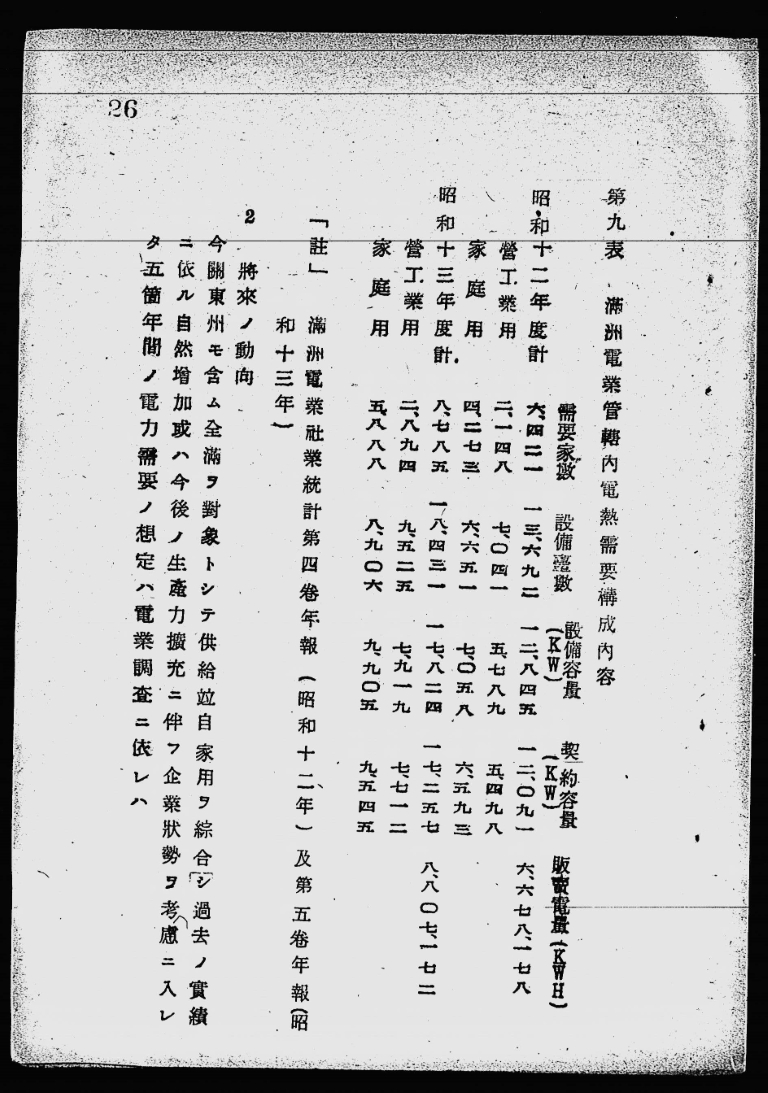 26
第九表　滿洲電業管轄內電熱需要構成內容
需要家數　設備臺數　設備容量(KW)　契約容量(KW)　販賣電量(KWH)
昭和十二年度計　六、四二一　一三、六九二　一二、八四五　一二、〇九一　六、六七八、一七八
營工業用　二、一四八　七、〇四一　五、七八九　五、四九八
家庭用　四、二七三　六、六五一　七、〇五八　六、五九三
昭和十三年度計　八、七八五　一八、四三一　一七、八二四　一七、二五七　八、八〇七、一七二
營工業用　二、八九四　九、五二五　七、九一九　七、七一二
家庭用　五、八八八　八、九〇六　九、九〇五　九、五四五
「註」　滿洲電業社業統計第四卷年報(昭和十二年)及第五卷年報(昭
和十三年)
2　將來ノ動向
今關東州モ含ム全滿ヲ對象トシテ供給竝自家用ヲ綜合シ過去ノ實績
ニ依ル自然增加或ハ今後ノ生產力擴充ニ伴フ企業狀勢ヲ考慮ニ入レ
タ五箇年間ノ電力需要ノ想定ハ電業調查ニ依レハ